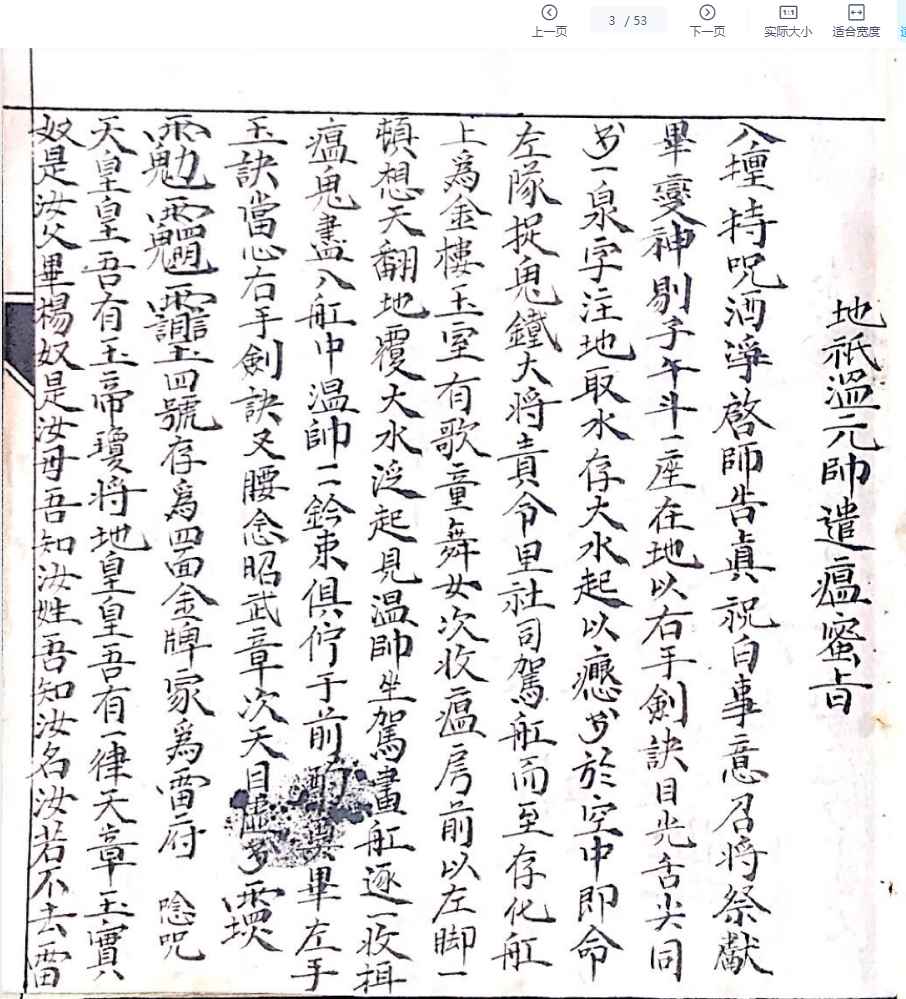 上一页
3 / 53
下一页
1:1
实际大小
适合宽度
地祇溫元帥遣瘟蜜旨
入壇持呪洒淨啓師告眞祝白事意召將祭獻
畢變神剔子午斗一座在地以右手劍訣目光舌尖同
一泉字注地取水存大水起以於空中即命
左隊捉鬼鐵大將責令里社司駕舡而至存化舡
上爲金樓玉室有歌童舞女次收瘟房前以左脚一
頓想天翻地覆大水泛起見溫帥坐駕畫舡逐一收揖
瘟鬼盡入舡中溫帥二鈴束俱佇于前畢左手
玉訣當心右手劍訣叉腰念昭武章次天目
四號存爲四面金牌家爲雷府 唸呪
天皇皇吾有玉帝瓊將地皇皇吾有一律天章玉實
奴是汝父畢楊奴是汝母吾知汝姓吾知汝名汝若不去雷